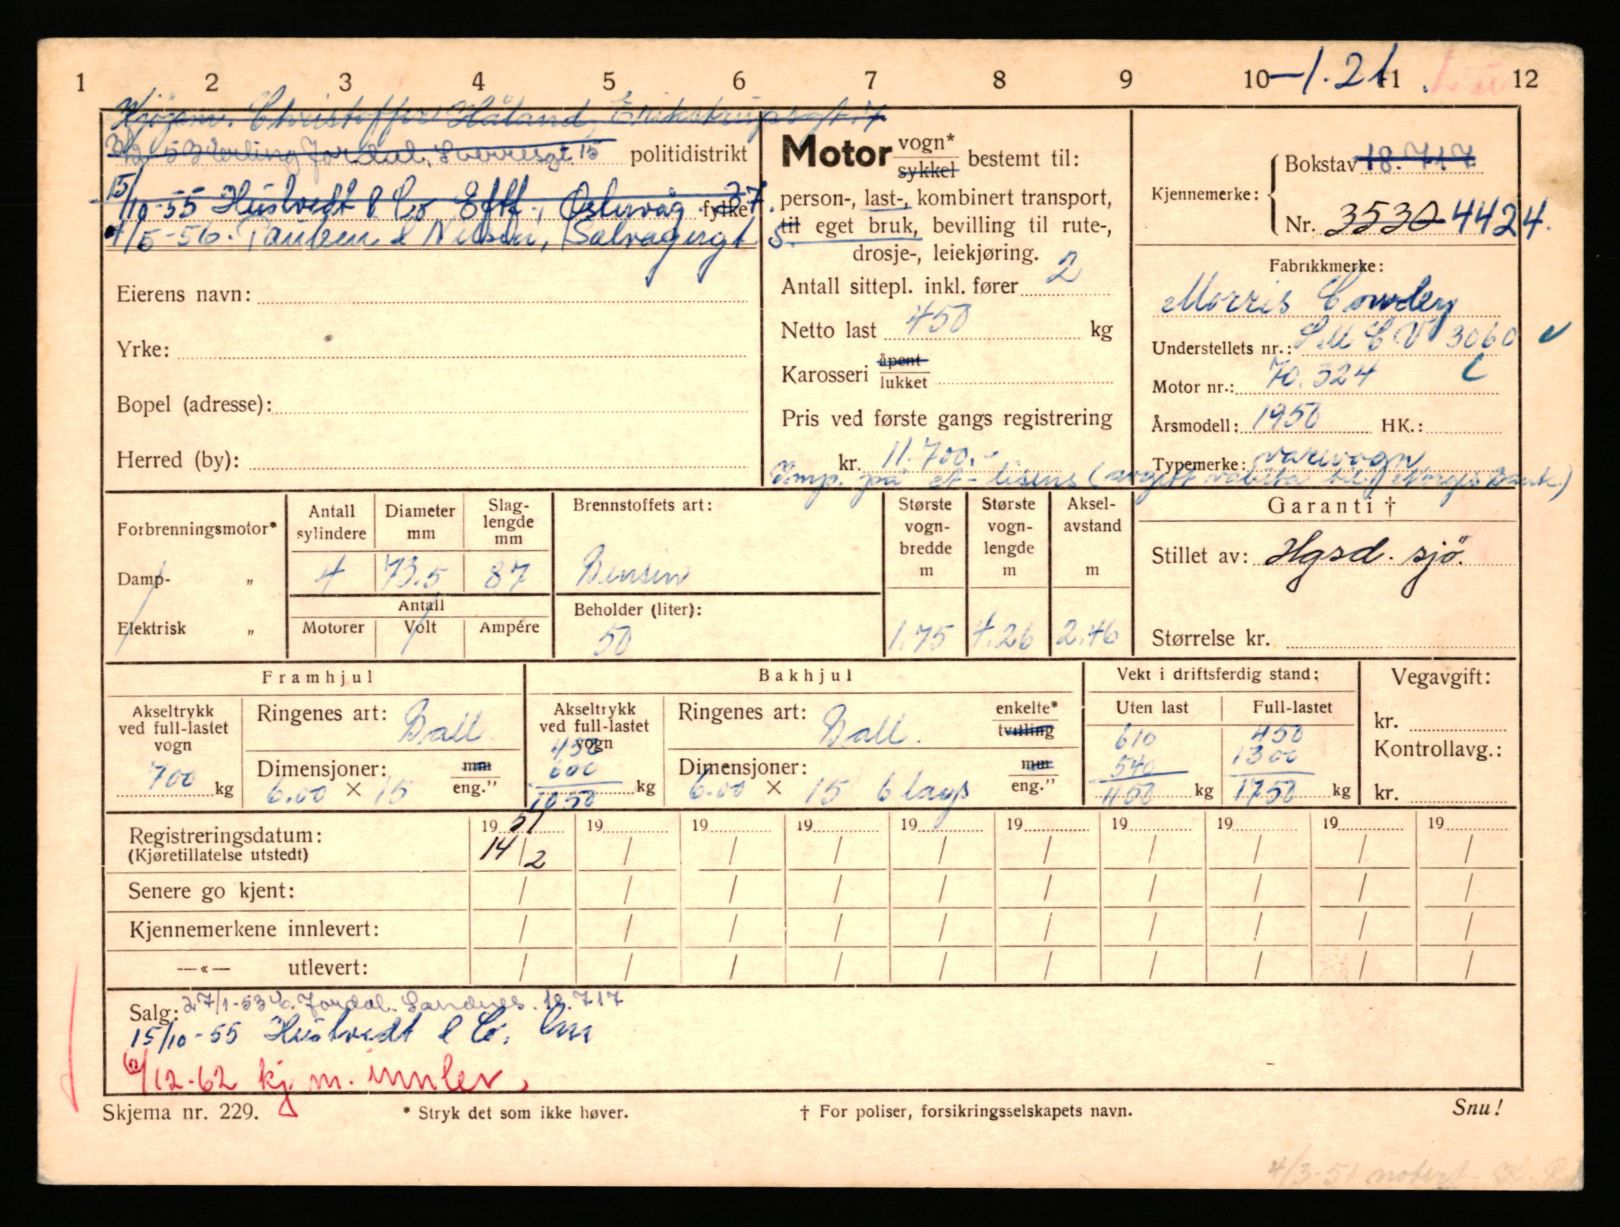 1 2 3 4 5 6 7 8 9 10 11 12
-1.21
Kjøpm. Christoffer Håland, Erikstrupsgt.
Erling Jordal, Sverresgt 15 politidistrikt
15/10-55 Hustvedt & Co Eftf., Østervåg 27. fylke
4/5-56. Paulsen & Nilsen, Salvagergt 5.
Eierens navn:
Yrke:
Bopel (adresse):
Herred (by):
Motor vogn* sykkel bestemt til:
person-, last-, kombinert transport,
til eget bruk, bevilling til rute-,
drosje-, leiekjøring.
Antall sittepl. inkl. fører 2
Netto last 450 kg
Karosseri åpent lukket
Pris ved første gangs registrering
kr. 11.700.-
Kjennemerke: Bokstav 18.717
Nr. 3530 4424.
Fabrikkmerke:
Morris Cowley
Understellets nr.: SMCV 3060
Motor nr.: 70.324
Årsmodell: 1950 HK.:
Typemerke: varevogn
Imp. på lisens (avgift til Norges Bank.)
Forbrenningsmotor*
Damp- "
Elektrisk "
Antall sylindere
4
Diameter mm
73.5
Slag-lengde mm
87
Antall
Motorer Volt Ampére
Brennstoffets art:
Bensin
Beholder (liter):
50
Største vogn-bredde m
1.75
Største vogn-lengde m
4.26
Aksel-avstand m
2.46
Garanti †
Stillet av: Hgsd. sjø.
Størrelse kr.
Framhjul
Akseltrykk ved full-lastet vogn
700 kg
Ringenes art: Ball.
Dimensjoner: mm
6.00 × 15 eng."
Bakhjul
Akseltrykk ved full-lastet vogn
450
600
1050 kg
Ringenes art: Ball. enkelte* tvilling
Dimensjoner: mm
6.00 × 15 6 lags eng."
Vekt i driftsferdig stand:
Uten last
610
540
1150 kg
Full-lastet
450
1300
1750 kg
Vegavgift:
kr.
Kontrollavg.:
kr.
Registreringsdatum: 1951 19 19 19 19 19 19 19 19 19
(Kjøretillatelse utstedt) 14/2 / / / / / / / / /
Senere go kjent: / / / / / / / / / /
Kjennemerkene innlevert: / / / / / / / / / /
—«— utlevert: / / / / / / / / / /
Salg: 27/1-53 Jordal. Sandnes. 18.717
15/10-55 Hustvedt & Co.
/12-62 kj m. innlev.
Skjema nr. 229. * Stryk det som ikke høver. † For poliser, forsikringsselskapets navn. Snu!
4/3-51